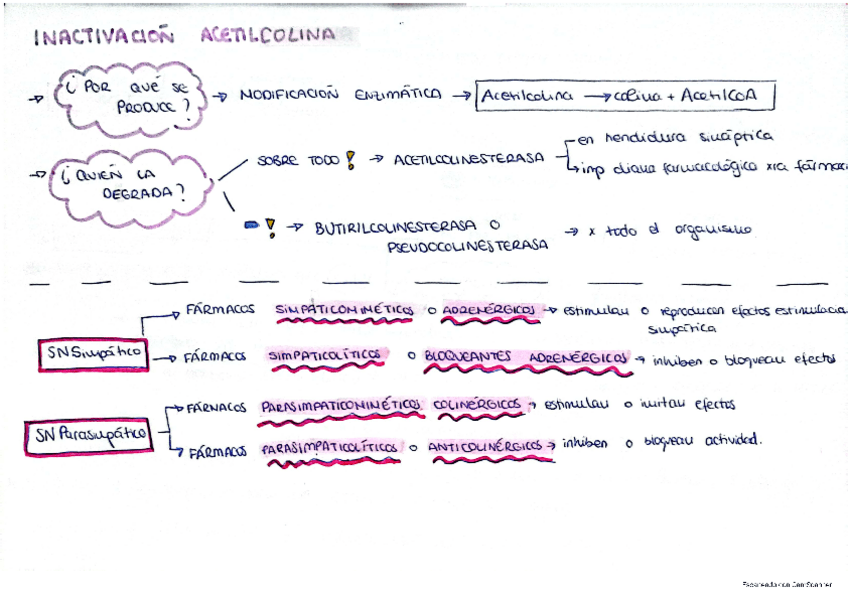 INACTIVACIÓN ACETILCOLINA
→ ¿POR QUÉ SE PRODUCE? → MODIFICACIÓN ENZIMÁTICA → Acetilcolina → colina + AcetilCoA
→ ¿QUIÉN LA DEGRADA?
SOBRE TODO! → ACETILCOLINESTERASA
en hendidura sináptica
→ imp diana farmacológica xra fármac
- ! → BUTIRILCOLINESTERASA O
PSEUDOCOLINESTERASA → x todo el organismo
SN Simpático
→ FÁRMACOS SIMPATICOMINÉTICOS o ADRENÉRGICOS → estimulan o reproducen efectos estimulacia
simpática
→ FÁRMACOS SIMPATICOLÍTICOS o BLOQUEANTES ADRENÉRGICOS → inhiben o bloquean efectos
SN Parasimpático
→ FÁRMACOS PARASIMPATICOMINÉTICOS COLINÉRGICOS → estimulan o imitan efectos
→ FÁRMACOS PARASIMPATICOLÍTICOS o ANTICOLINÉRGICOS → inhiben o bloquean actividad.
Escaneado con CamScanner